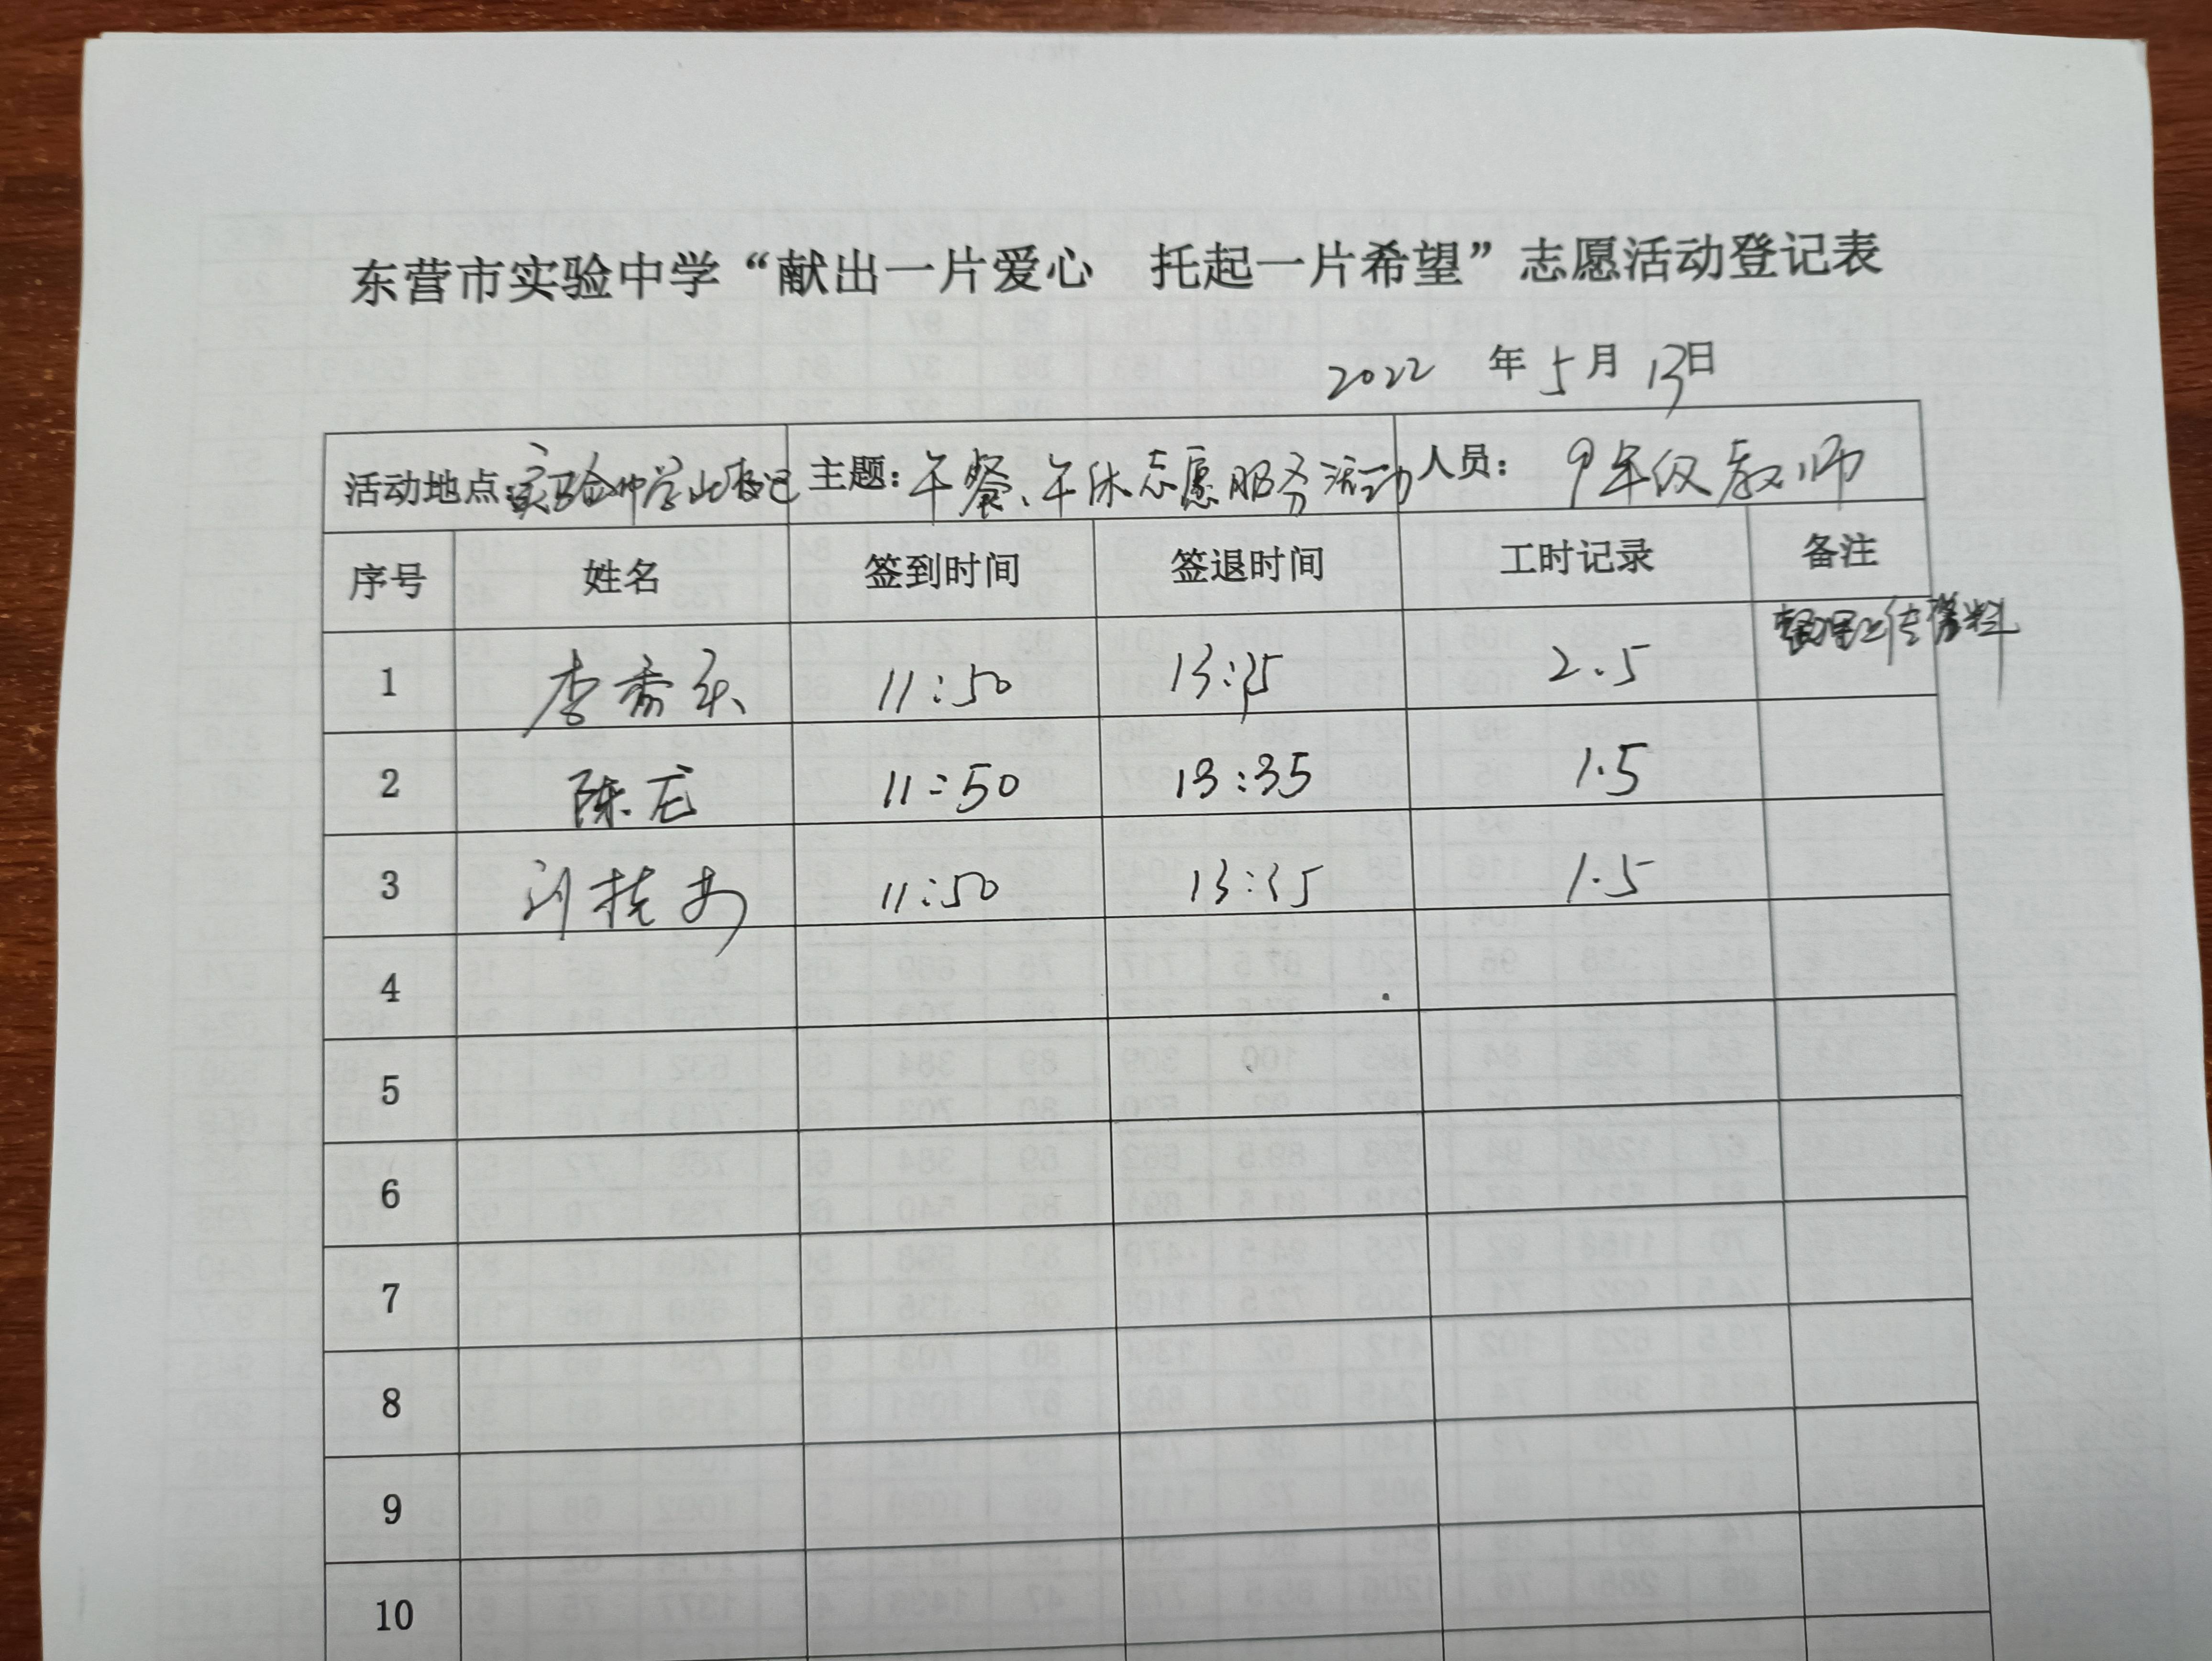 东营市实验中学“献出一片爱心 托起一片希望”志愿活动登记表
2022 年 5 月 13 日
活动地点:实验中学北校区 主题:午餐、午休志愿服务活动 人员: 9年级教师
序号 姓名 签到时间 签退时间 工时记录 备注
1 李 11:50 13:35 2.5 整理上传资料
2 陈龙 11:50 13:35 1.5
3 刘 11:50 13:35 1.5
4
5
6
7
8
9
10